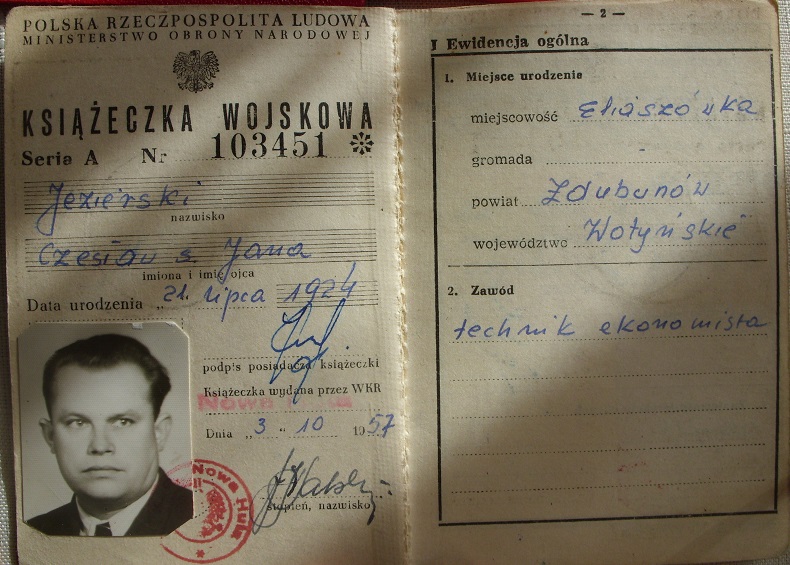 POLSKA RZECZPOSPOLITA LUDOWA
MINISTERSTWO OBRONY NARODOWEJ
KSIĄŻECZKA WOJSKOWA
Seria A Nr 103451
Jezierski
nazwisko
Czesław s. Jana
imiona i imię ojca
Data urodzenia „21. lipca 1924
podpis posiadacza książeczki
Książeczka wydana przez WKR
Nowa Huta
Dnia „3 " 10 1957
Nowa Huta
stopień, nazwisko
— 2 —
I Ewidencja ogólna
1. Miejsce urodzenia
miejscowość Eliaszówka
gromada -
powiat Zdubunów
województwo Wołyńskie
2. Zawód
technik ekonomista